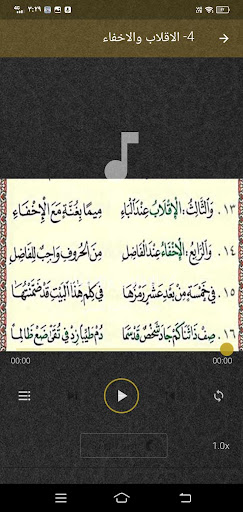 ٣:٢٩
4- الاقلاب والاخفاء
١٣. وَالثَّالِثُ: الْإِقْلَابُ عِنْدَ الْبَاءِ مِيمًا بِغُنَّةٍ مَعَ الْإِخْفَاءِ
١٤. وَالرَّابِعُ: الْإِخْفَاءُ عِنْدَ الْفَاضِلِ مِنَ الْحُرُوفِ وَاجِبٌ لِلْفَاضِلِ
١٥. فِي خَمْسَةٍ مِنْ بَعْدِ عَشْرٍ رَمْزُهَا فِي كِلْمِ هَذَا الْبَيْتِ قَدْ ضَمَّنْتُهَا
١٦. صِفْ ذَا ثَنَا كَمْ جَادَ شَخْصٌ قَدْ سَمَا دُمْ طَيِّبًا زِدْ فِي تُقًى ضَعْ ظَالِمَا
00:00 00:00
1.0x